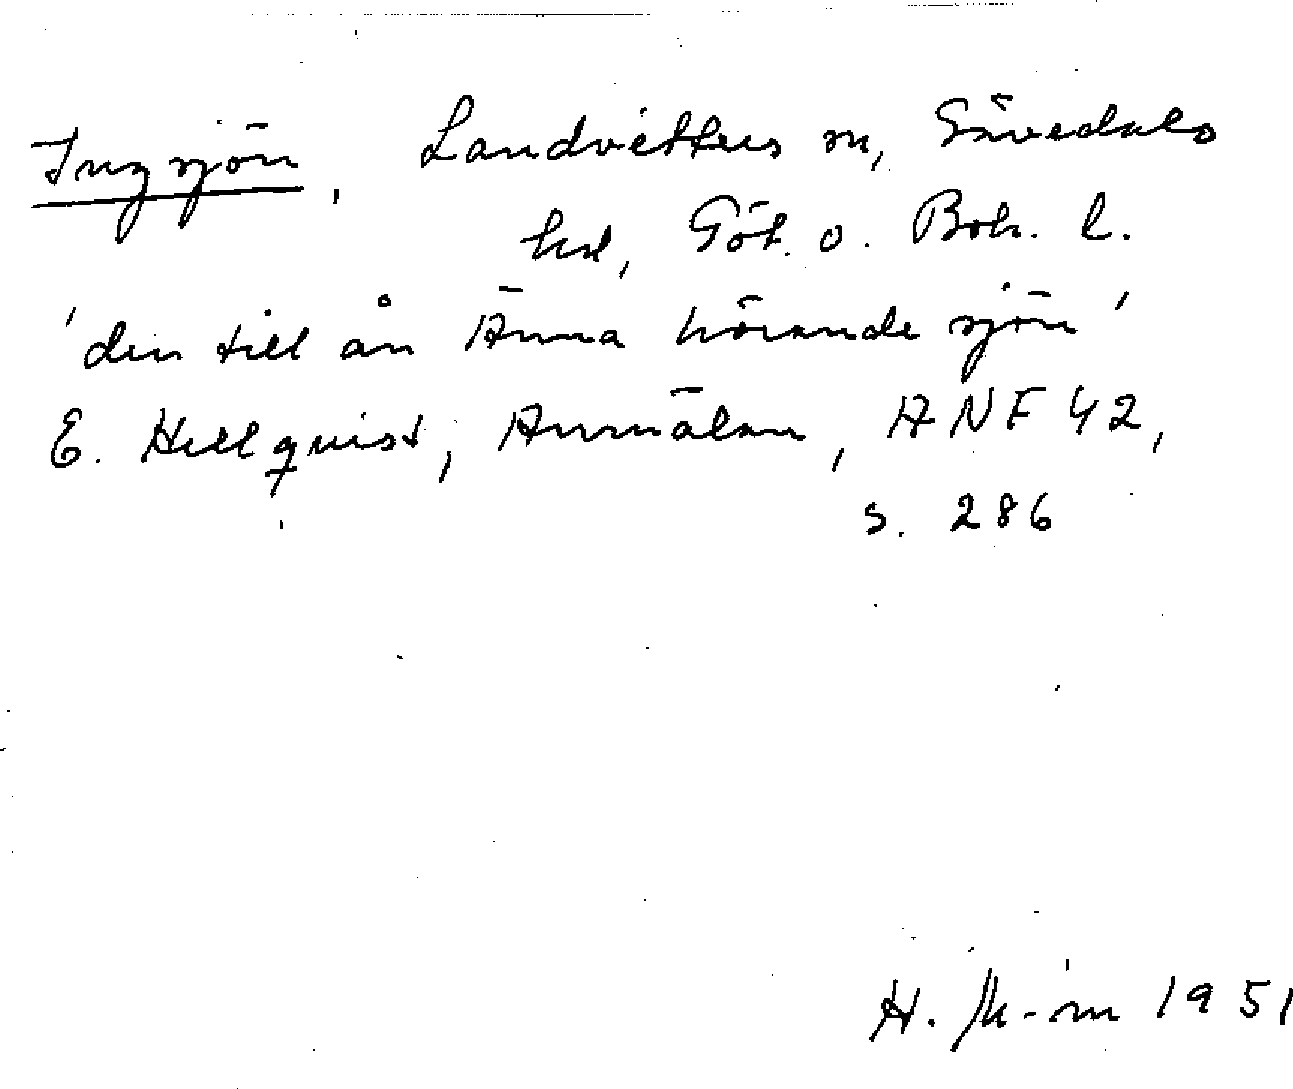 Ingsjön, Landvetters sn, Sävedals
hd, Göt. o. Boh. l.
'den till ån Änna hörande sjön'
E. Hellquist, Anmälan, ANF 42,
s. 286
H. 1951